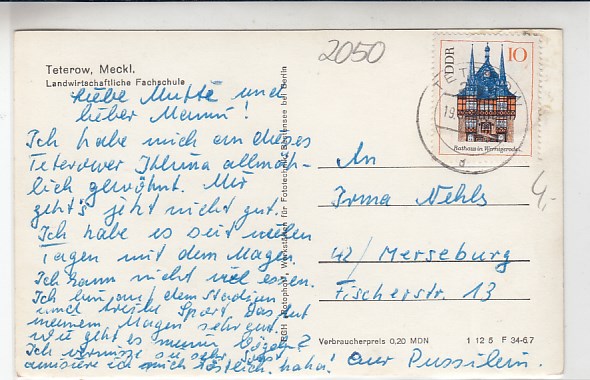 2050
Teterow, Meckl.
Landwirtschaftliche Fachschule
DDR 10
Rathaus in Wernigerode
TETEROW
19.
d
4,-
Liebe Mutti und
lieber Manni!
Ich habe mich an dieses
Teterower Klima allmäh-
lich gewöhnt. Mir
geht's jetzt nicht gut.
Ich habe es seit vielen
Tagen mit dem Magen.
Ich kann nicht viel essen.
Ich bin auf dem Stadion
und treibe Sport. Das tut
meinem Magen sehr gut.
Wie geht es meinem
Ich vermisse sie sehr. Sonst
amüsiere ich mich köstlich. haha!
BGH Photophot, Werkstätten für Fototechnik, bei Berlin
An
Irma Nehls
42/ Merseburg
Fischerstr. 13
Verbraucherpreis 0,20 MDN
1 12 5 F 34-67
Eur Pussilein.